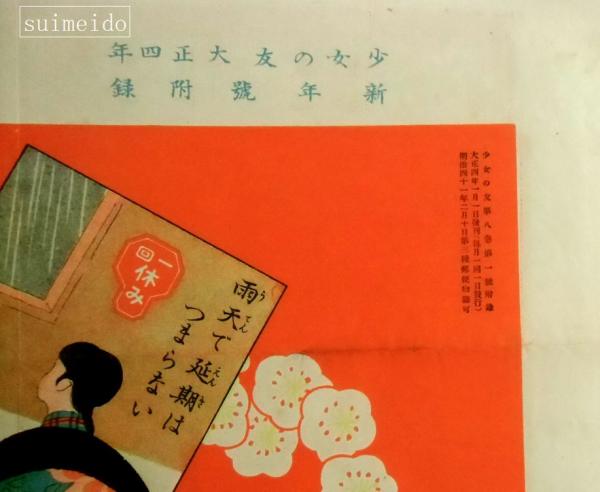 suimeido
少女の友 大正四年
新年號附録
少女の友第八卷第一號附錄
大正四年一月一日發刊(每月一回一日發行)
明治四十一年二月十日第三種郵便物認可
一回休み
雨天で延期は
うてん えんき
つまらない